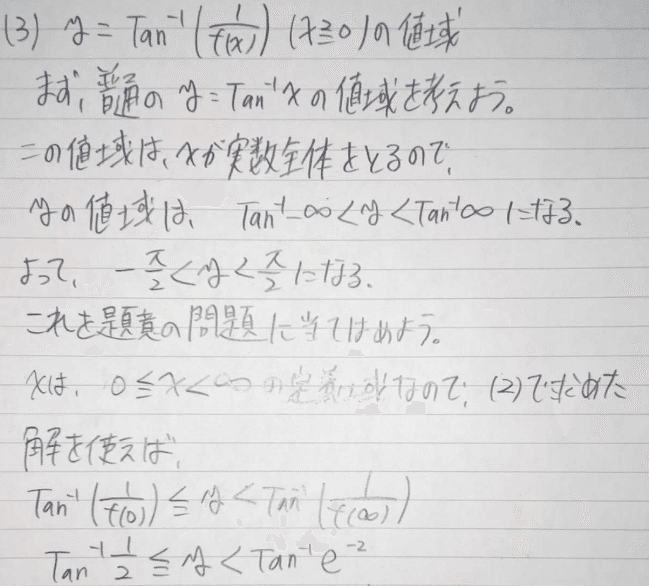 (3) y = Tan⁻¹(1/f(x)) (x≧0)の値域
まず,普通の y=Tan⁻¹xの値域を考えよう。
この値域は,xが実数全体をとるので,
yの値域は, Tan⁻¹-∞<y<Tan⁻¹∞になる.
よって, -π/2<y<π/2になる.
これを題意の問題に当てはめよう。
xは, 0≦x<∞の定義域なので, (2)で求めた
解を使えば,
Tan⁻¹(1/f(0))≦y<Tan⁻¹(1/f(∞))
Tan⁻¹1/2≦y<Tan⁻¹e⁻²